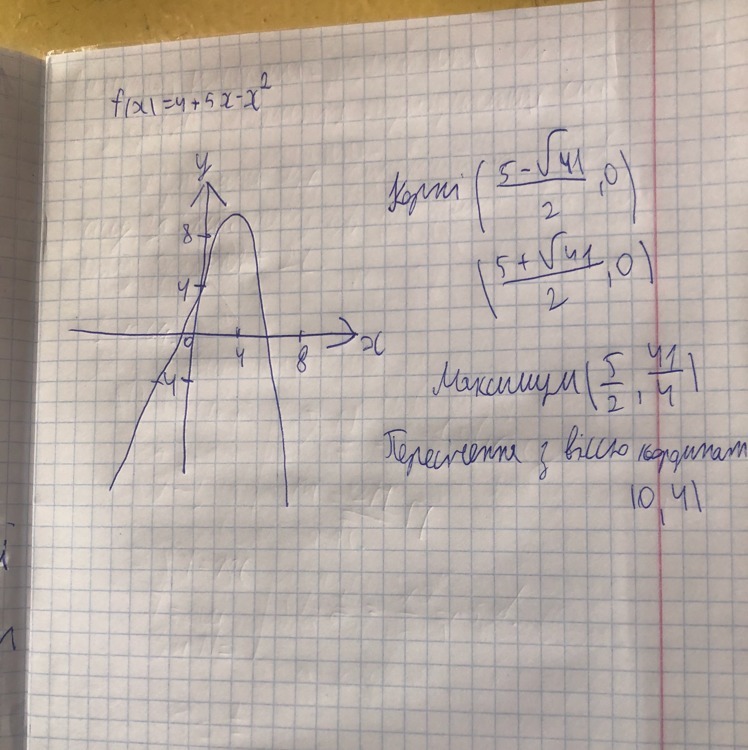 f(x)=4+5x-x²
y
8
4
0
4
8
x
-4
Корні (5-√41/2, 0)
(5+√41/2, 0)
Максимум (5/2, 41/4)
Перетнення з віссю координат
(0,4)